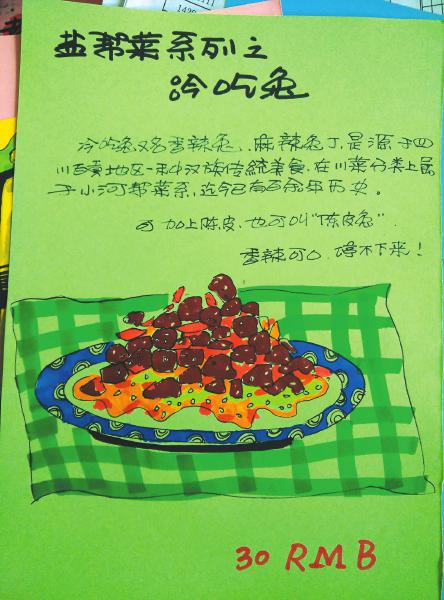 盐帮菜系列之
冷吃兔
冷吃兔又名香辣兔、麻辣兔丁,是源于四
川自贡地区一种汉族传统美食,在川菜分类上属
于小河帮菜系,迄今已有百余年历史。
可加上陈皮,也可叫“陈皮兔”.
香辣可口,停不下来!
30 RMB